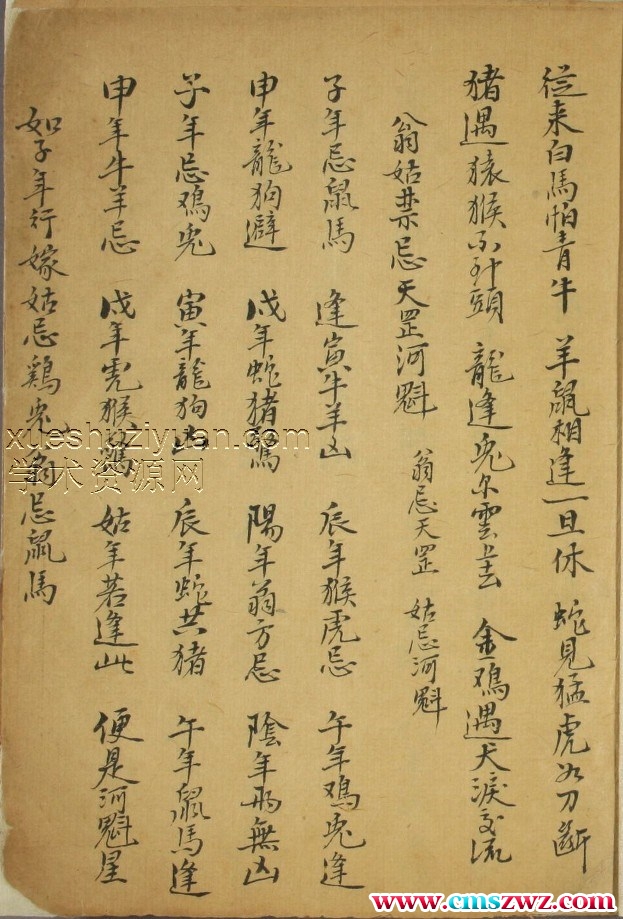 從来白馬怕青牛 羊鼠相逢一旦休 蛇見猛虎如刀斷
猪遇猿猴不到頭 龍逢兔尔雲上去 金鳮遇犬淚交流
翁姑禁忌天罡河魁 翁忌天罡 姑忌河魁
子年忌鼠馬 逢寅牛羊凶 辰年猴虎忌 午年鳮兔逢
申年龍狗避 戌年蛇猪驚 陽年翁方忌 陰年而無凶
子年忌鳮兔 寅年龍狗凶 辰年蛇共猪 午年鼠馬逢
申年牛羊忌 戌年虎猴驚 姑年若逢此 便是河魁星
如子年行嫁姑忌鷄兔翁忌鼠馬
xueshuziyuan.com
学术资源网
www.cmszwz.com